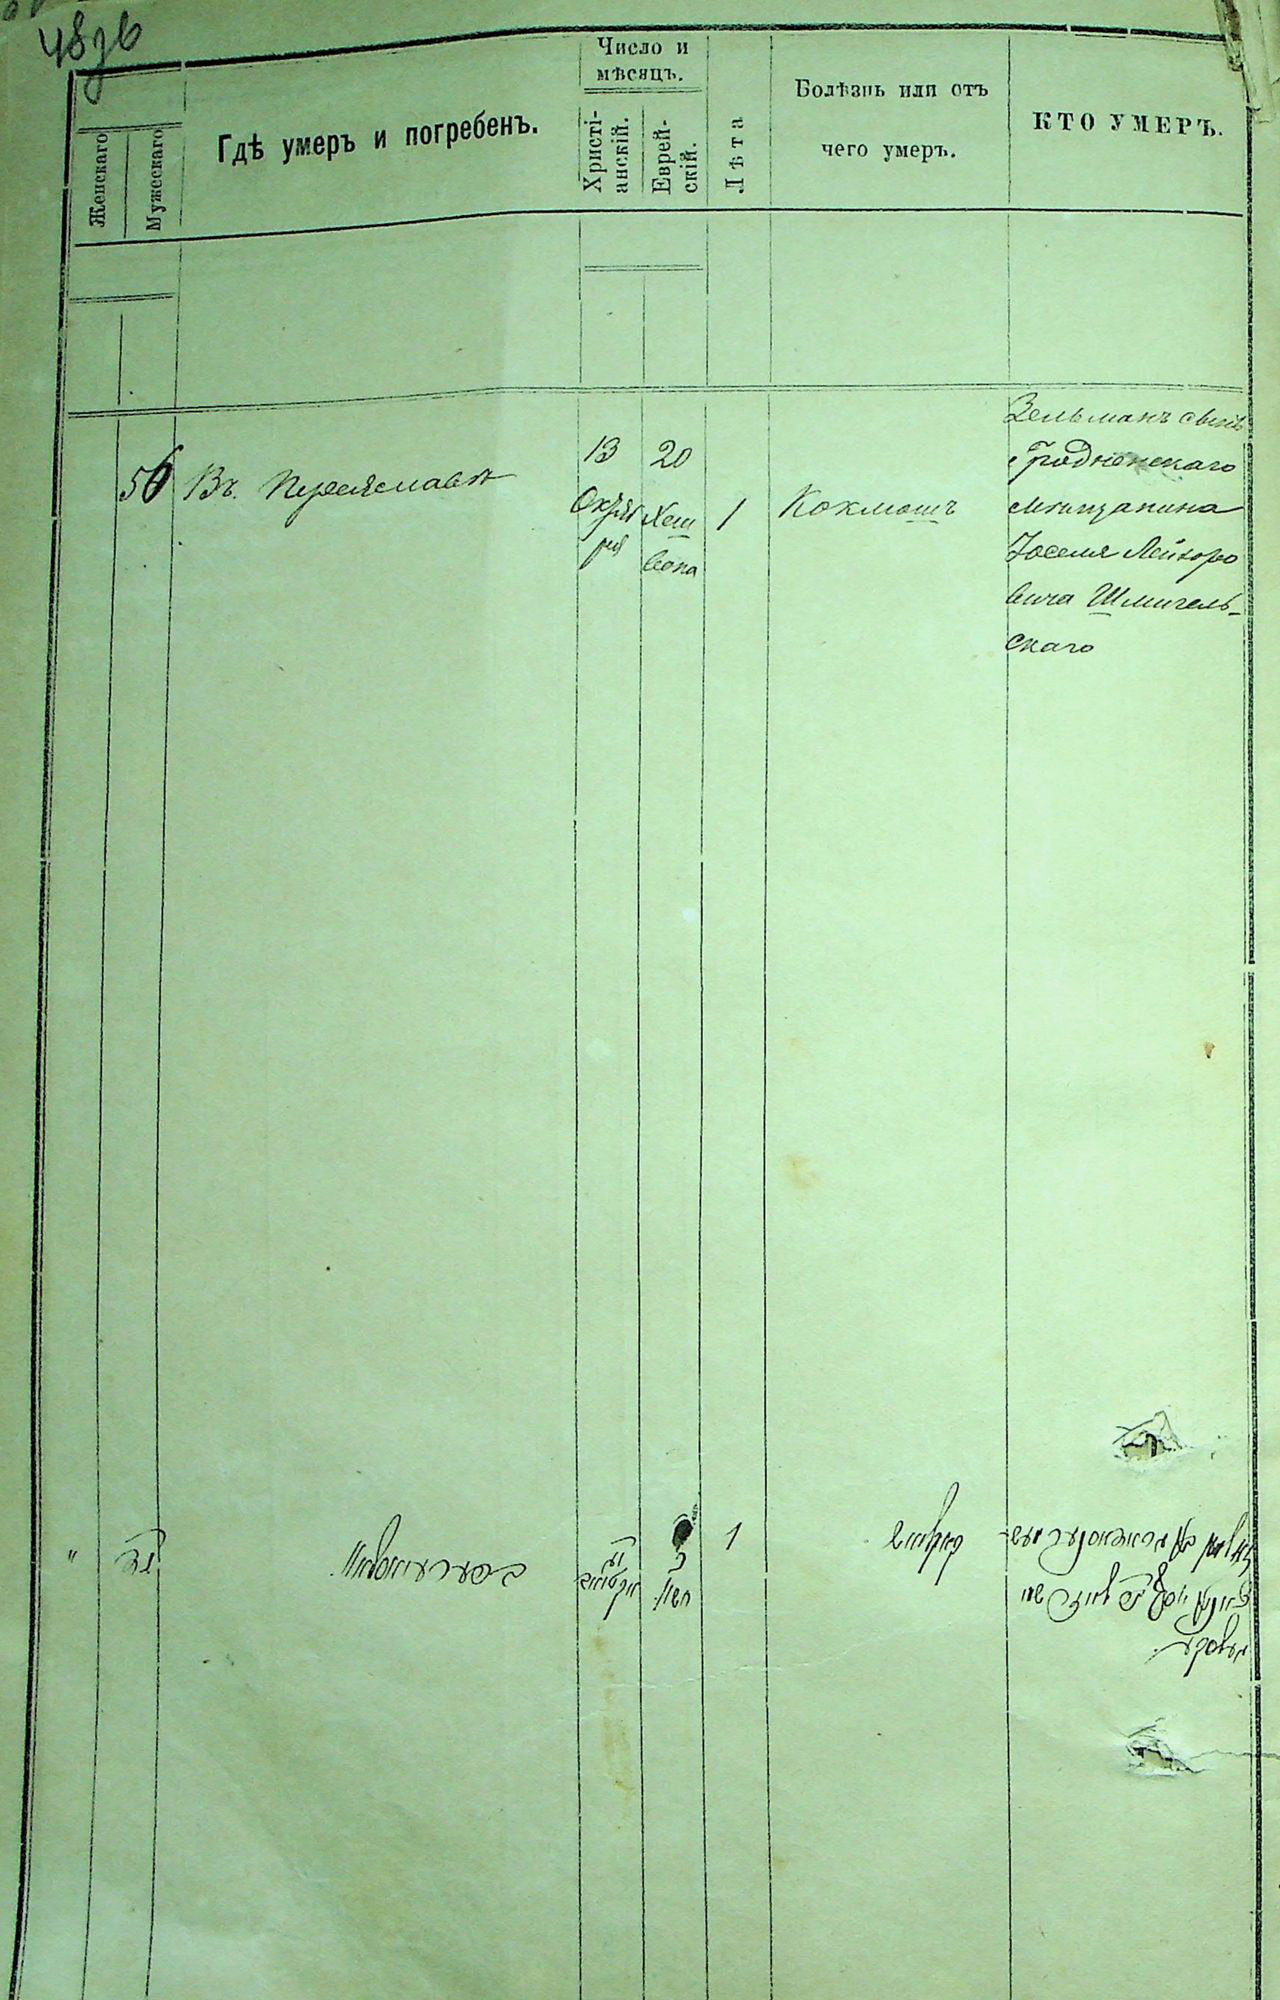 48зв
Женскаго
Мужескаго
Гдѣ умеръ и погребенъ.
Число и
мѣсяцъ.
Христі-
анскій.
Еврей-
скій.
Лѣта
Болѣзнь или отъ
чего умеръ.
КТО УМЕРЪ.
56
Въ Переяславѣ
13
Октяб
ря
20
Хеш
вона
1
Коклюшъ
Зельманъ сынъ
Гродненскаго
мѣщанина
Іоселя Лейзоро
вича Шмигель-
скаго
"
נו
בפערעיאסלאוו
יג
אקטיאב
כ
חשון
1
קאקליוש